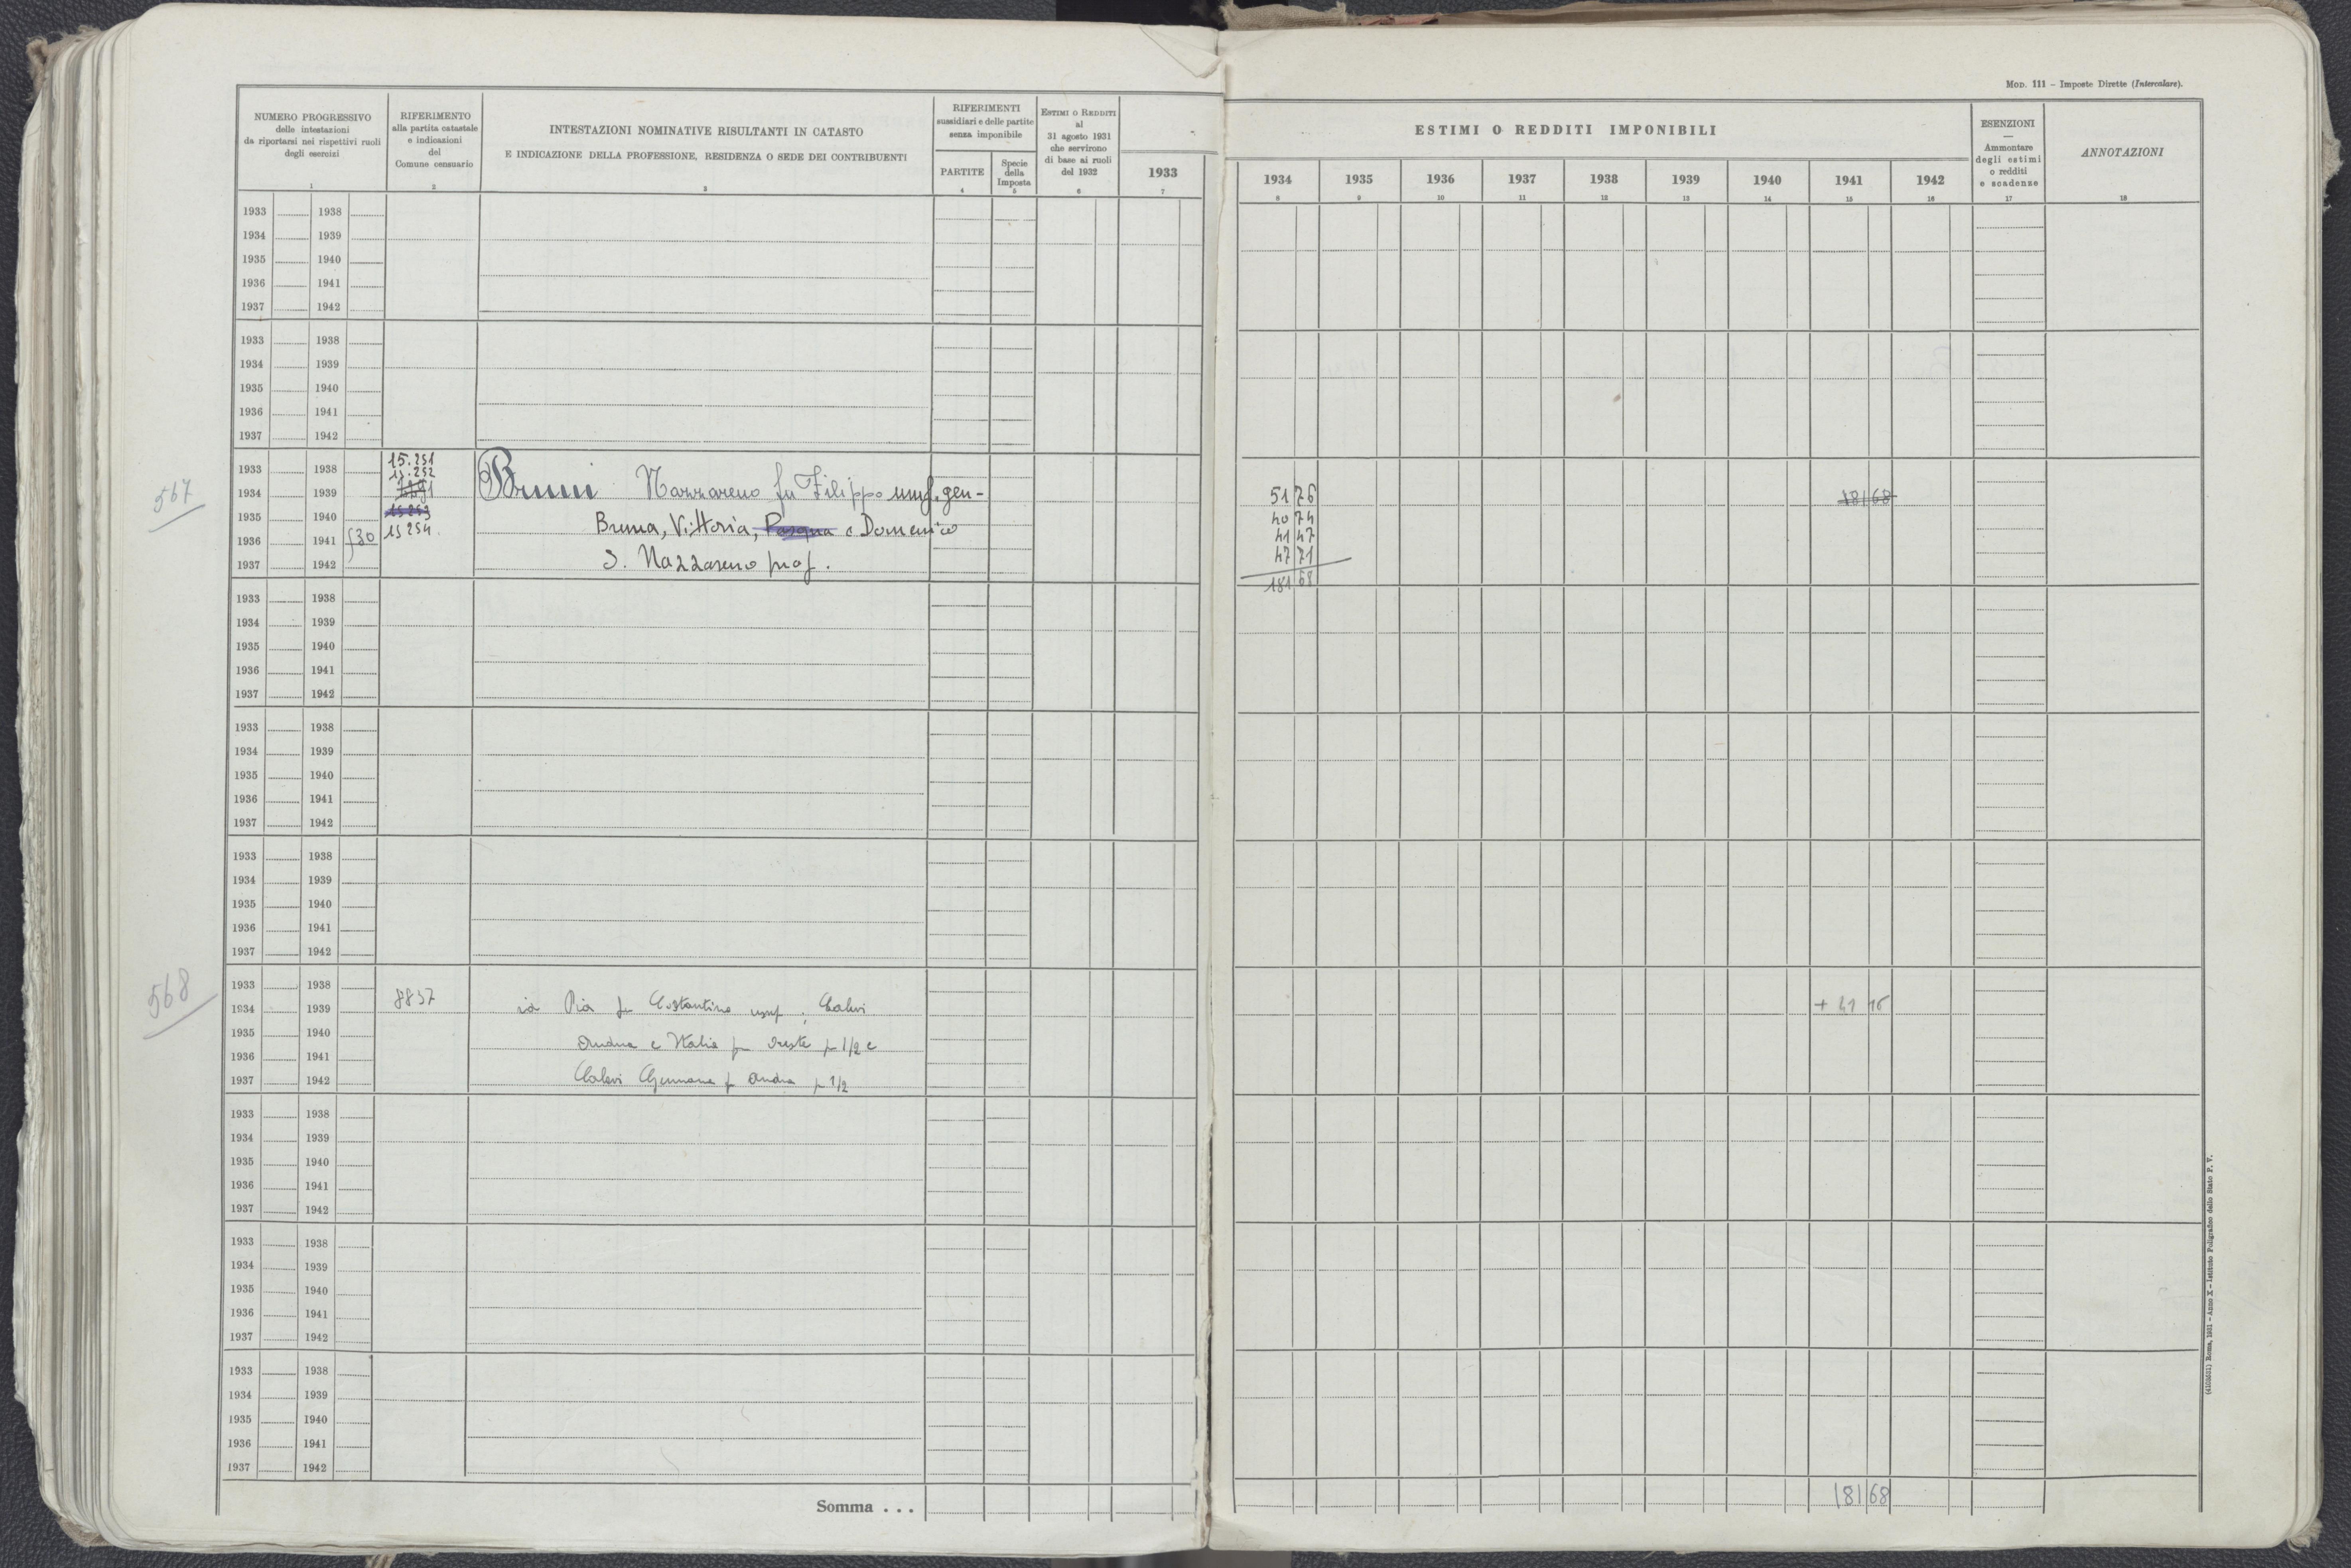 MOD. 111 – Imposte Dirette (Intercalare).
NUMERO PROGRESSIVO
delle intestazioni
da riportarsi nei rispettivi ruoli
degli esercizi
1
RIFERIMENTO
alla partita catastale
e indicazioni
del
Comune censuario
2
INTESTAZIONI NOMINATIVE RISULTANTI IN CATASTO
E INDICAZIONE DELLA PROFESSIONE, RESIDENZA O SEDE DEI CONTRIBUENTI
3
RIFERIMENTI
sussidiari e delle partite
senza imponibile
PARTITE
4
Specie
della
Imposta
5
ESTIMI O REDDITI
al
31 agosto 1931
che servirono
di base ai ruoli
del 1932
6
1933
7
ESTIMI O REDDITI IMPONIBILI
1934 1935 1936 1937 1938 1939 1940 1941 1942
8 9 10 11 12 13 14 15 16
ESENZIONI
—
Ammontare
degli estimi
o redditi
e scadenze
17
ANNOTAZIONI
18
1933 1938
1934 1939
1935 1940
1936 1941
1937 1942
1933 1938
1934 1939
1935 1940
1936 1941
1937 1942
567
1933 1938 15.251
15.252
1934 1939 Bruni Nazzareno fu Filippo usuf. gen- 51 76 181 68
1935 1940 15253 40 74
1936 1941 530 15254. Bruna, Vittoria, Pasqua e Domenico 41 47
1937 1942 S. Nazzareno prof. 47 71
181 68
1933 1938
1934 1939
1935 1940
1936 1941
1937 1942
1933 1938
1934 1939
1935 1940
1936 1941
1937 1942
1933 1938
1934 1939
1935 1940
1936 1941
1937 1942
568
1933 1938 8837
1934 1939 id Pia fu Costantino usuf. Calevi + 41 16
1935 1940 e Italia fu Oreste p 1/2 e
1936 1941
1937 1942 Calevi Germana fu Andrea p 1/2
1933 1938
1934 1939
1935 1940
1936 1941
1937 1942
1933 1938
1934 1939
1935 1940
1936 1941
1937 1942
1933 1938
1934 1939
1935 1940
1936 1941
1937 1942
Somma . . . 181 68
(4103631) Roma, 1931 – Anno X – Istituto Poligrafico dello Stato P. V.